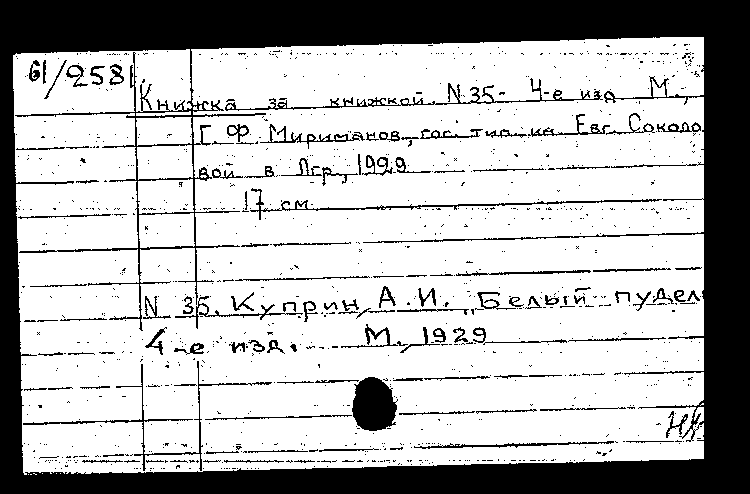 61/2581
Книжка за книжкой. N35- 4-е изд М.,
Г. Ф Мириманов, гос. тип. им Евг Соколо
вой в Лгр, 1929
17 см
N 35. Куприн, А. И. „Белый пудел
4-е изд. М., 1929